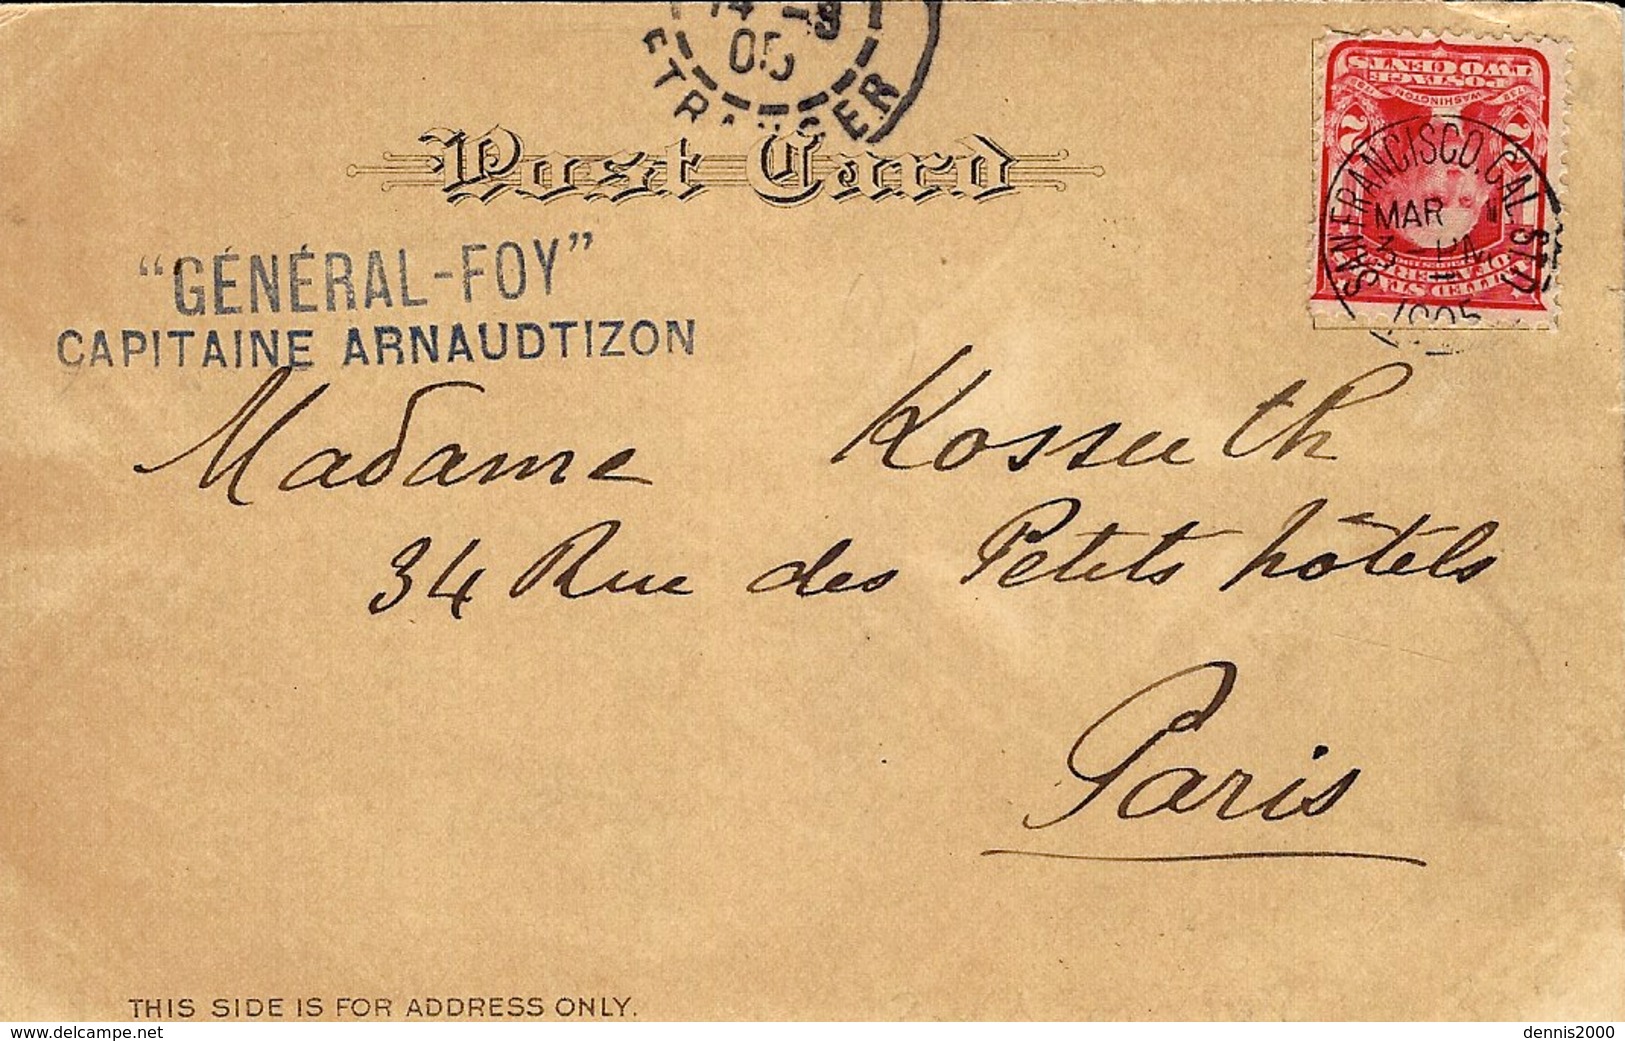 14 -3
05
ETRANGER
Post Card
TWO CENTS
POSTAGE
WASHINGTON
2 2
SAN FRANCISCO, CAL. STA
MAR
3 - PM
1905
"GÉNÉRAL-FOY"
CAPITAINE ARNAUDTIZON
Madame Kossuth
34 Rue des Petits hôtels
Paris
THIS SIDE IS FOR ADDRESS ONLY.
www.delcampe.net
dennis2000